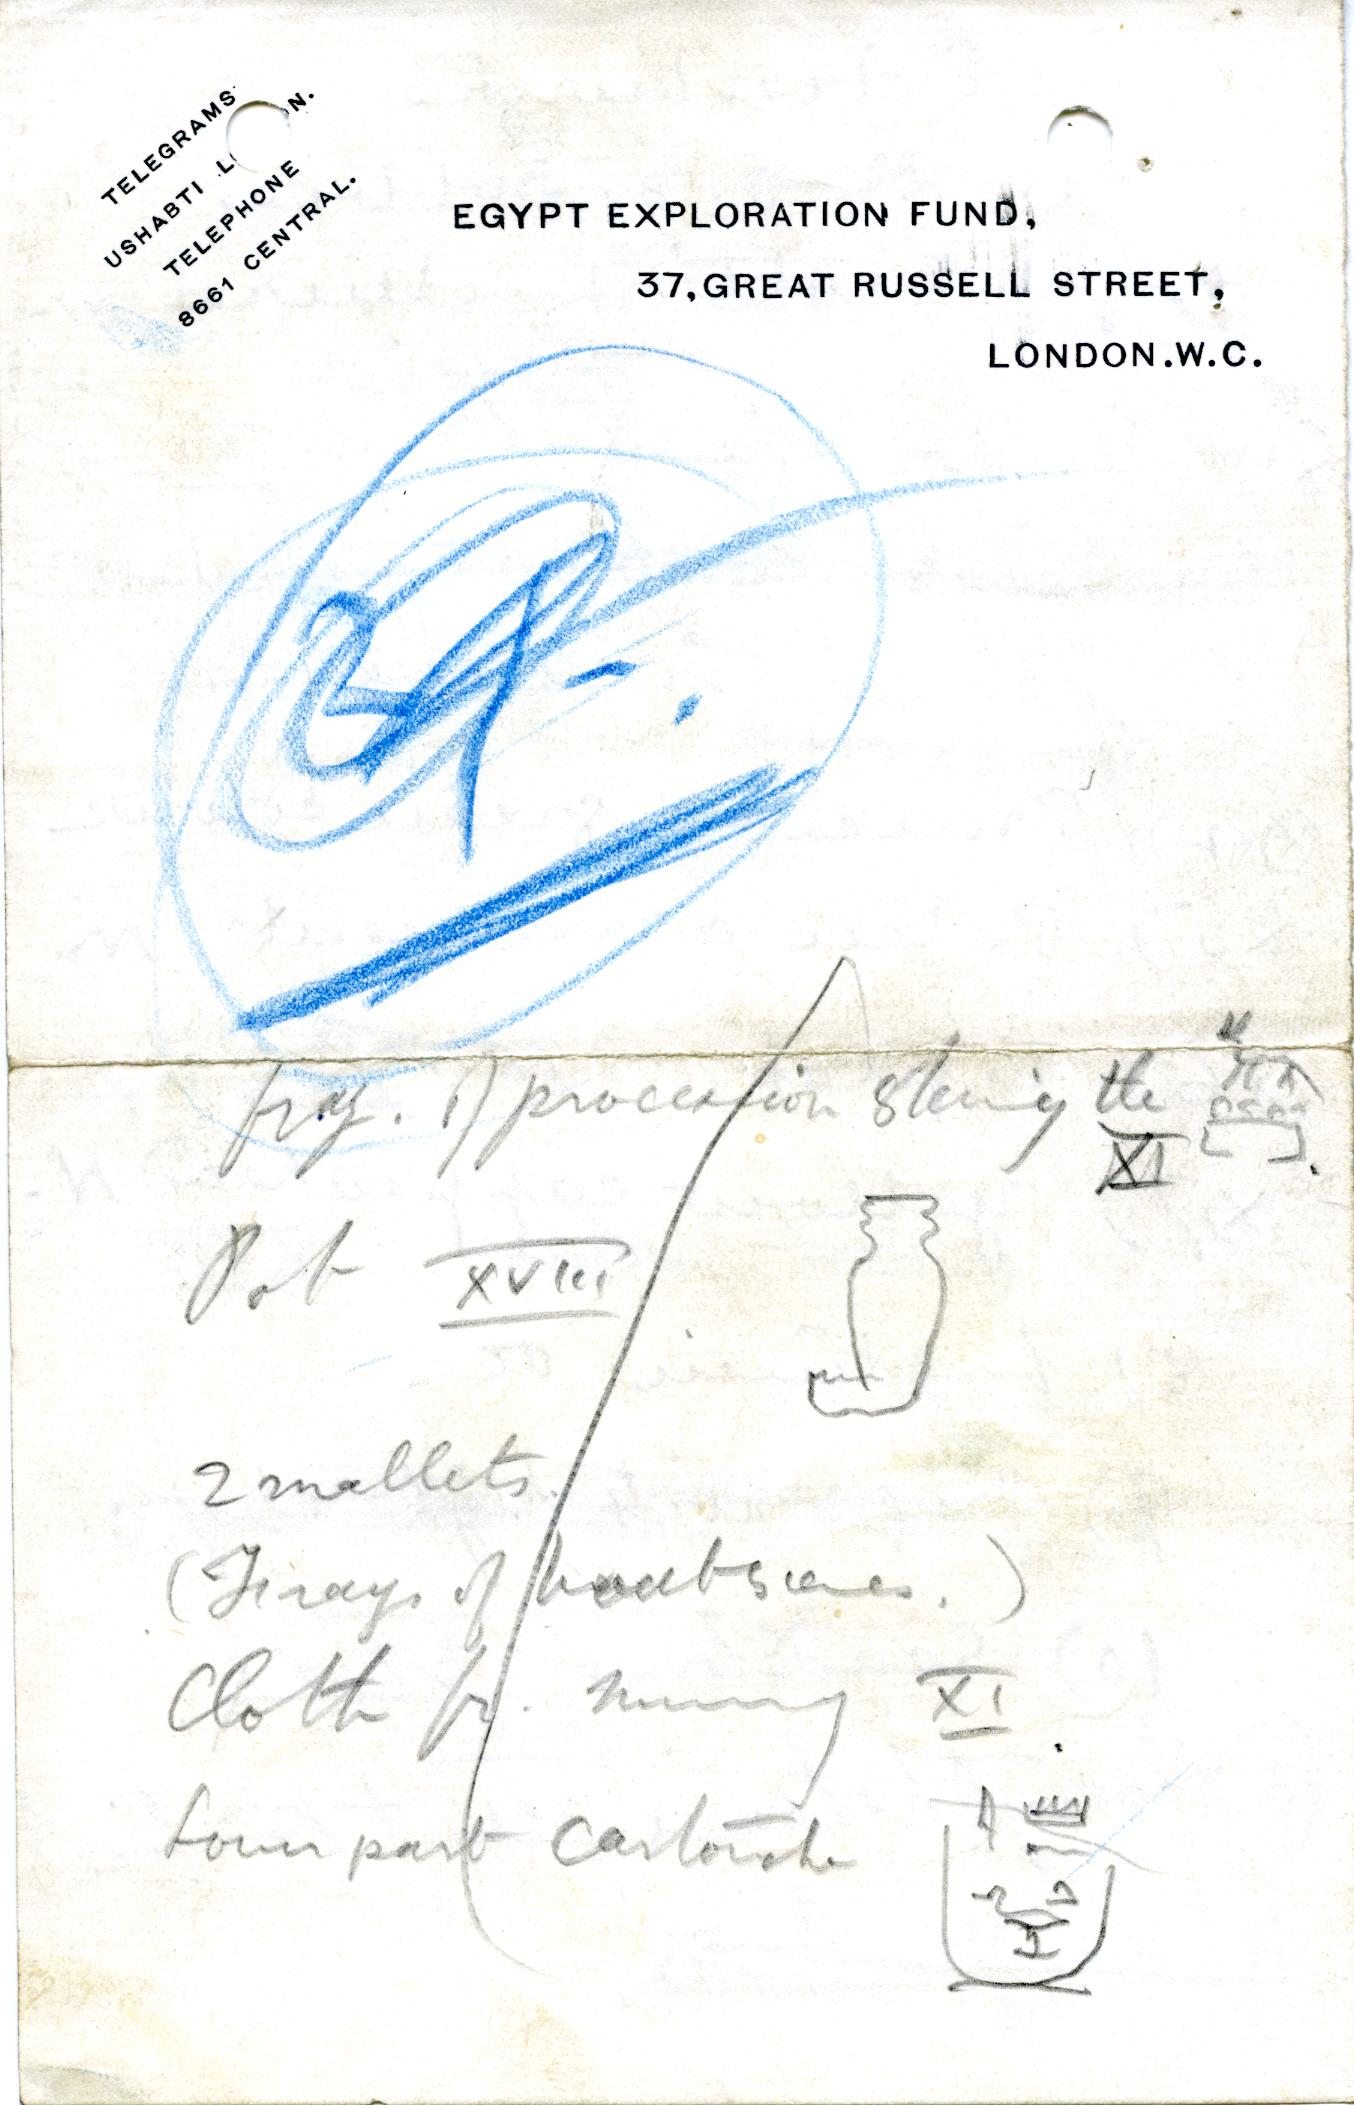 TELEGRAMS
USHABTI LON.
TELEPHONE
8661 CENTRAL.
EGYPT EXPLORATION FUND,
37, GREAT RUSSELL STREET,
LONDON. W.C.
frag. of procession shewing the
XI
Pot XVIII
2 mallets.
(Frags of boat scenes.)
Cloth fr. mummy XI.
Lower part cartouche